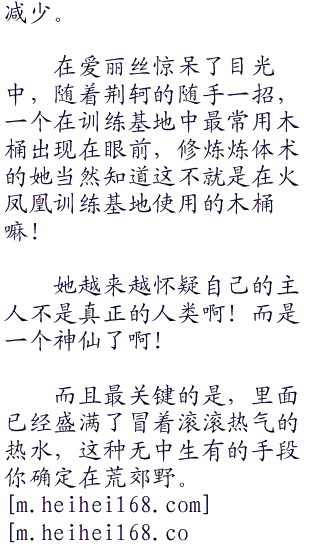 减少。
在爱丽丝惊呆了目光
中，随着荆轲的随手一招，
一个在训练基地中最常用木
桶出现在眼前，修炼炼体术
的她当然知道这不就是在火
凤凰训练基地使用的木桶
嘛！
她越来越怀疑自己的主
人不是真正的人类啊！而是
一个神仙了啊！
而且最关键的是，里面
已经盛满了冒着滚滚热气的
热水，这种无中生有的手段
你确定在荒郊野。
[m.heihei168.com]
[m.heihei168.co